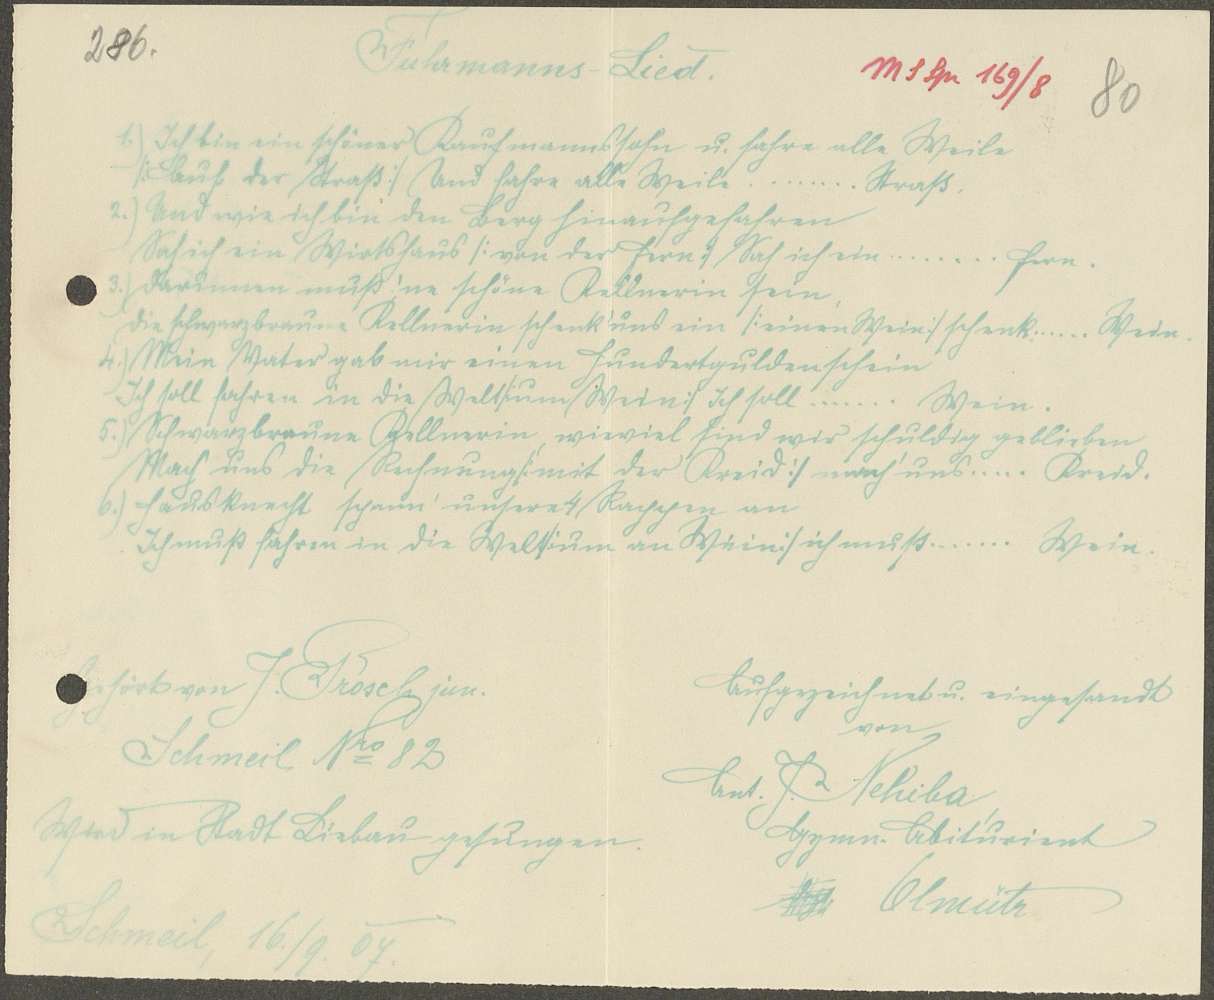 286.
Fuhrmanns-Lied.
MS Spr 169/8
80
1.) Ich bin ein schöner Kaufmannssohn u. fahre alle Weile
/: Auf der Straß :/ Und fahre alle Weile ........ Straß.
2.) Und wie ich bin den Berg hinaufgefahren
Sah ich ein Wirtshaus /: von der Fern :/ Sah ich ein ........ Fern.
3.) Darinnen muß 'ne schöne Kellnerin sein,
die schwarzbraune Kellnerin schenk' uns ein /: einen Wein :/ schenk ...... Wein.
4.) Mein Vater gab mir einen Hundertguldenschein
Ich soll fahren in die Welt /: um Wein :/ Ich soll ....... Wein.
5.) Schwarzbraune Kellnerin, wieviel sind wir schuldig geblieben
Mach' uns die Rechnung /: mit der Kreid :/ mach' uns ..... Kreid.
6.) Hausknecht spann' unsere 4 Rappen an
Ich muß fahren in die Welt /: um an Wein :/ ich muß ....... Wein.
Gehört von J. Prosch jun.
Schmeil Nro 82
Wird in Stadt Liebau gesungen.
Schmeil, 16./9. 07.
Aufgezeichnet u. eingesandt
von
Ant. J. Nehiba,
Gymn. Abiturient
Olmütz